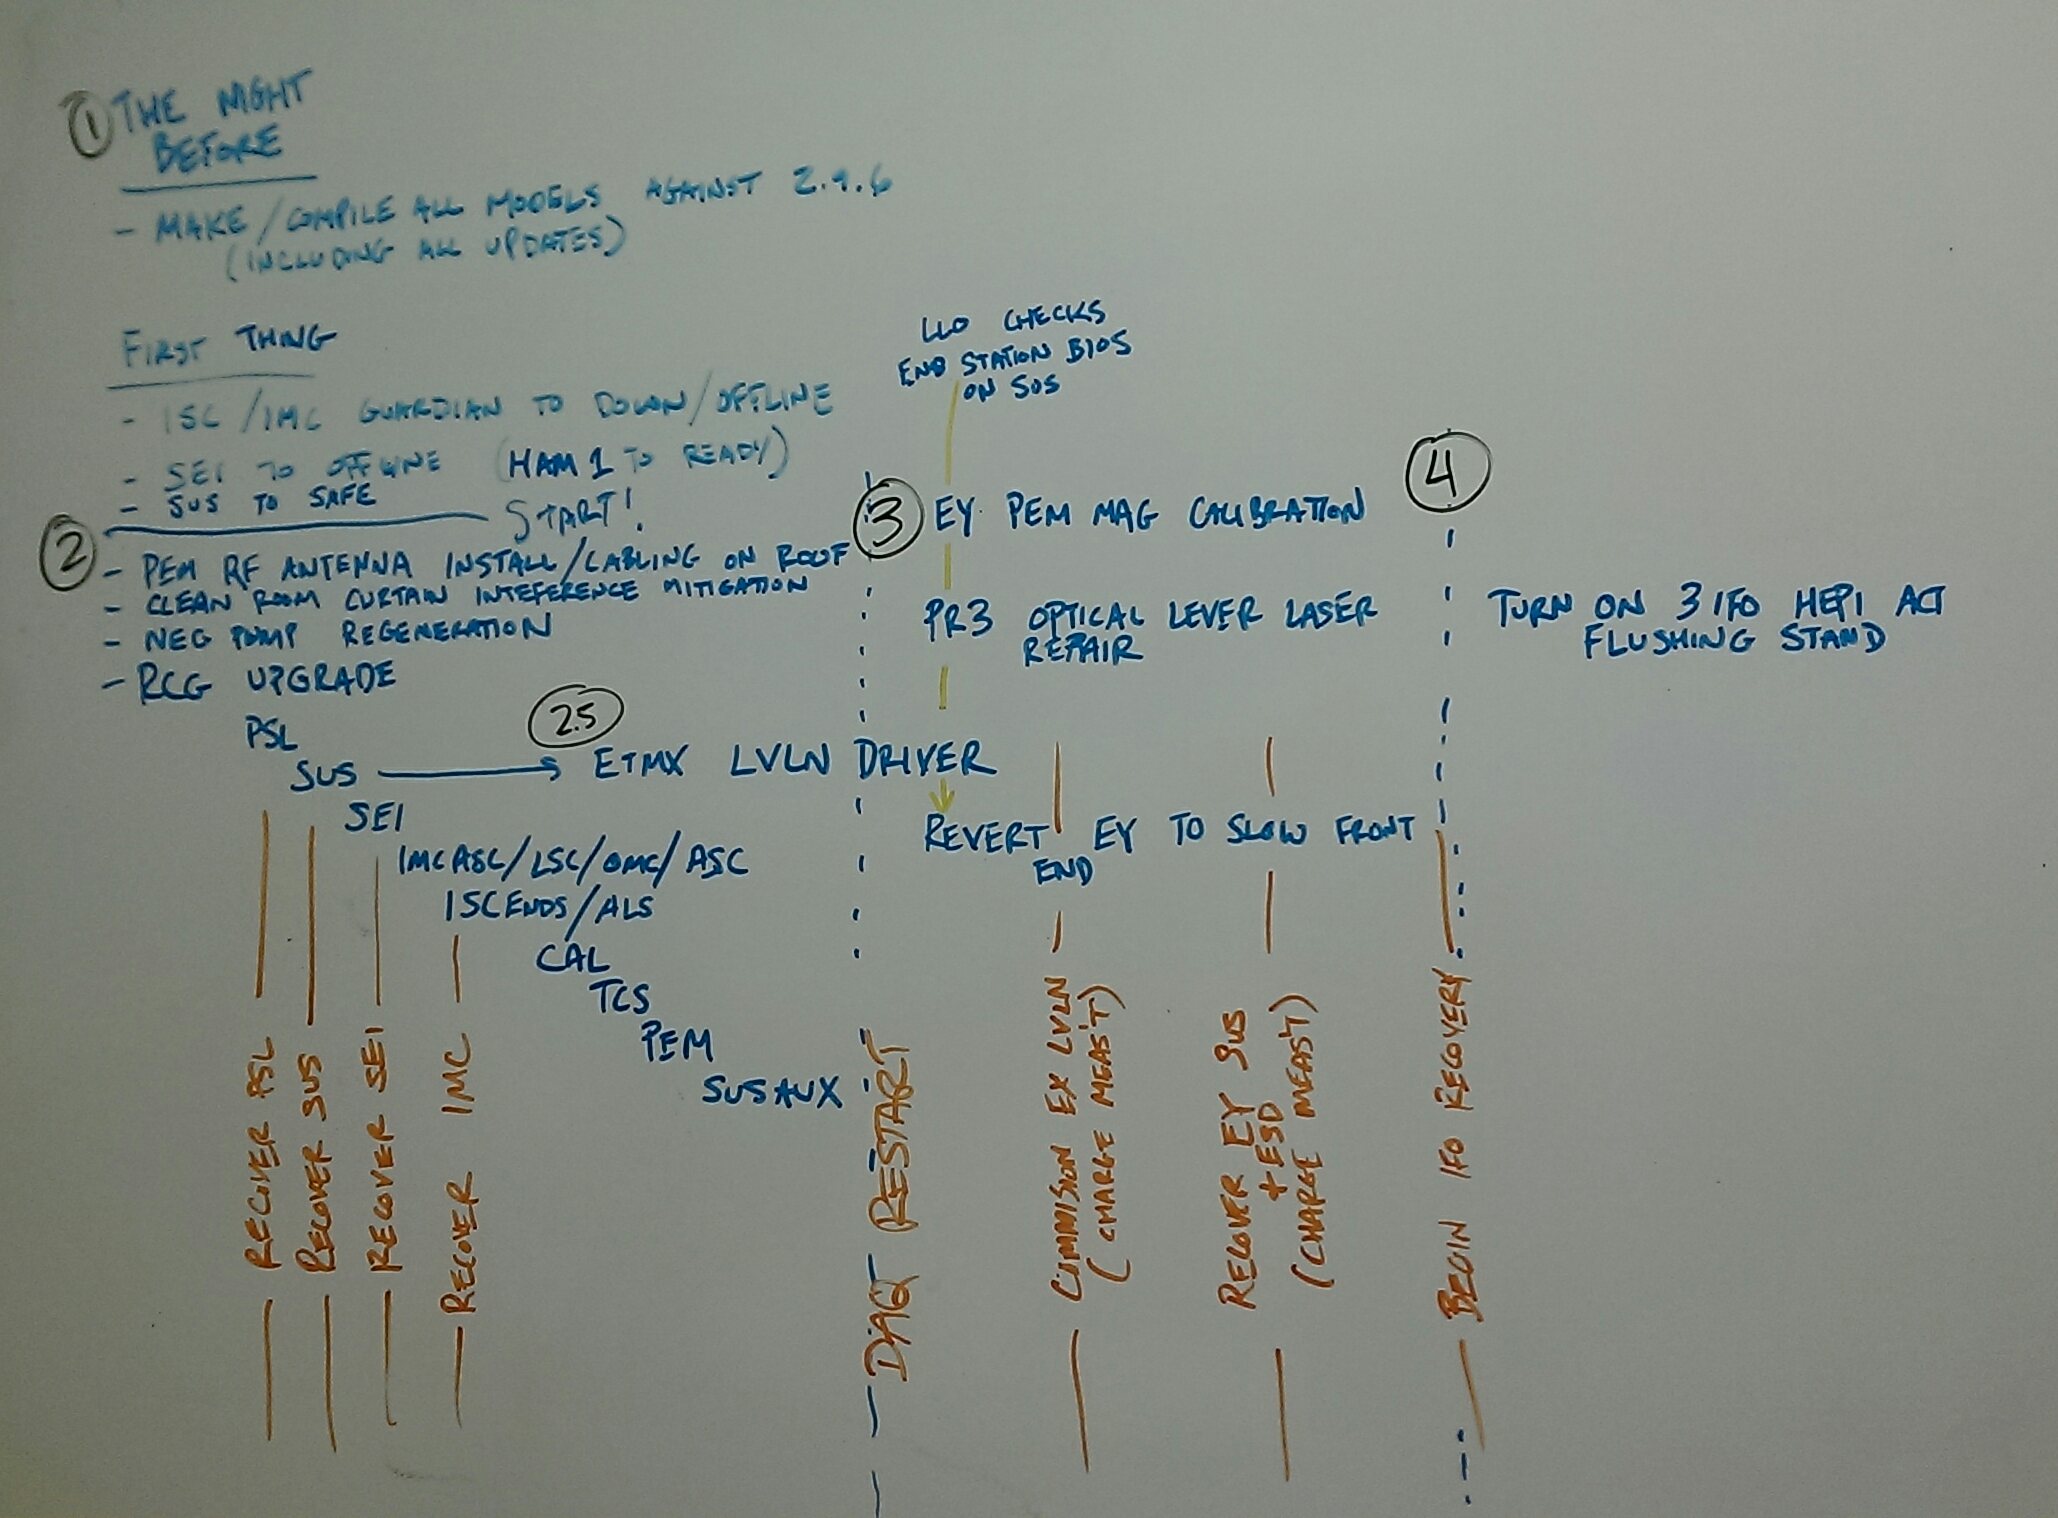 ① THE NIGHT
BEFORE
- MAKE/COMPILE ALL MODELS AGAINST 2.9.6
(INCLUDING ALL UPDATES)
FIRST THING
- ISC/IMC GUARDIAN TO DOWN/OFFLINE
- SEI TO OFFLINE (HAM 1 TO READY)
- SUS TO SAFE
START!
②
- PEM RF ANTENNA INSTALL/CABLING ON ROOF
- CLEAN ROOM CURTAIN INTEFERENCE MITIGATION
- NEG PUMP REGENERATION
- RCG UPGRADE
PSL
SUS → ETMX LVLN DRIVER
2.5
SEI
IMCASC/LSC/OMC/ASC
ISCENDS/ALS
CAL
TCS
PEM
SUSAUX
RECOVER PSL
RECOVER SUS
RECOVER SEI
RECOVER IMC
DAQ RESTART
LLO CHECKS
END STATION BIOS
ON SUS
③ EY PEM MAG CALIBRATION
PR3 OPTICAL LEVER LASER
REPAIR
REVERT EY TO SLOW FRONT
END
COMMISION EX LVLN
(CHARGE MEAS'T)
RECOVER EY SUS
+ ESD
(CHARGE MEAS'T)
④
TURN ON 3 IFO HEPI ACT
FLUSHING STAND
BEGIN IFO RECOVERY